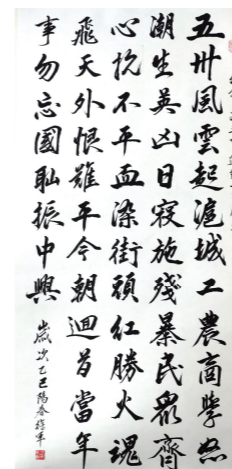 五卅風雲起滬城工農商學怒
潮生英凶日寇施殘暴民眾齊
心抗不平血染街頭紅勝火魂
飛天外恨難平今朝迴首當年
事勿忘國恥振中興
歲次乙巳陽春